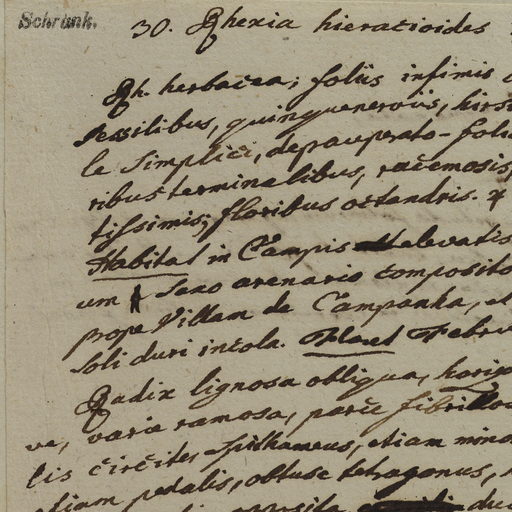 Schrank.
30. Rhexia hieracioides
Rh. herbacea; foliis infimis
sessilibus, quinquenerviis, hirs
le simplici, depauperato-foli
ribus terminalibus, racemosis,
tissimis; floribus octandris. ♃
Habitat in Campis elevatis
um Saxo arenario composito
prope Villam de Campanha, et
soli duri incola. Floret Febru
Radix lignosa obliqua, horiz
ve, varie ramosa, parce fibrillos
lis circiter spithameus, etiam mino
etiam pedalis, obtuse tetragonus,
opposita du